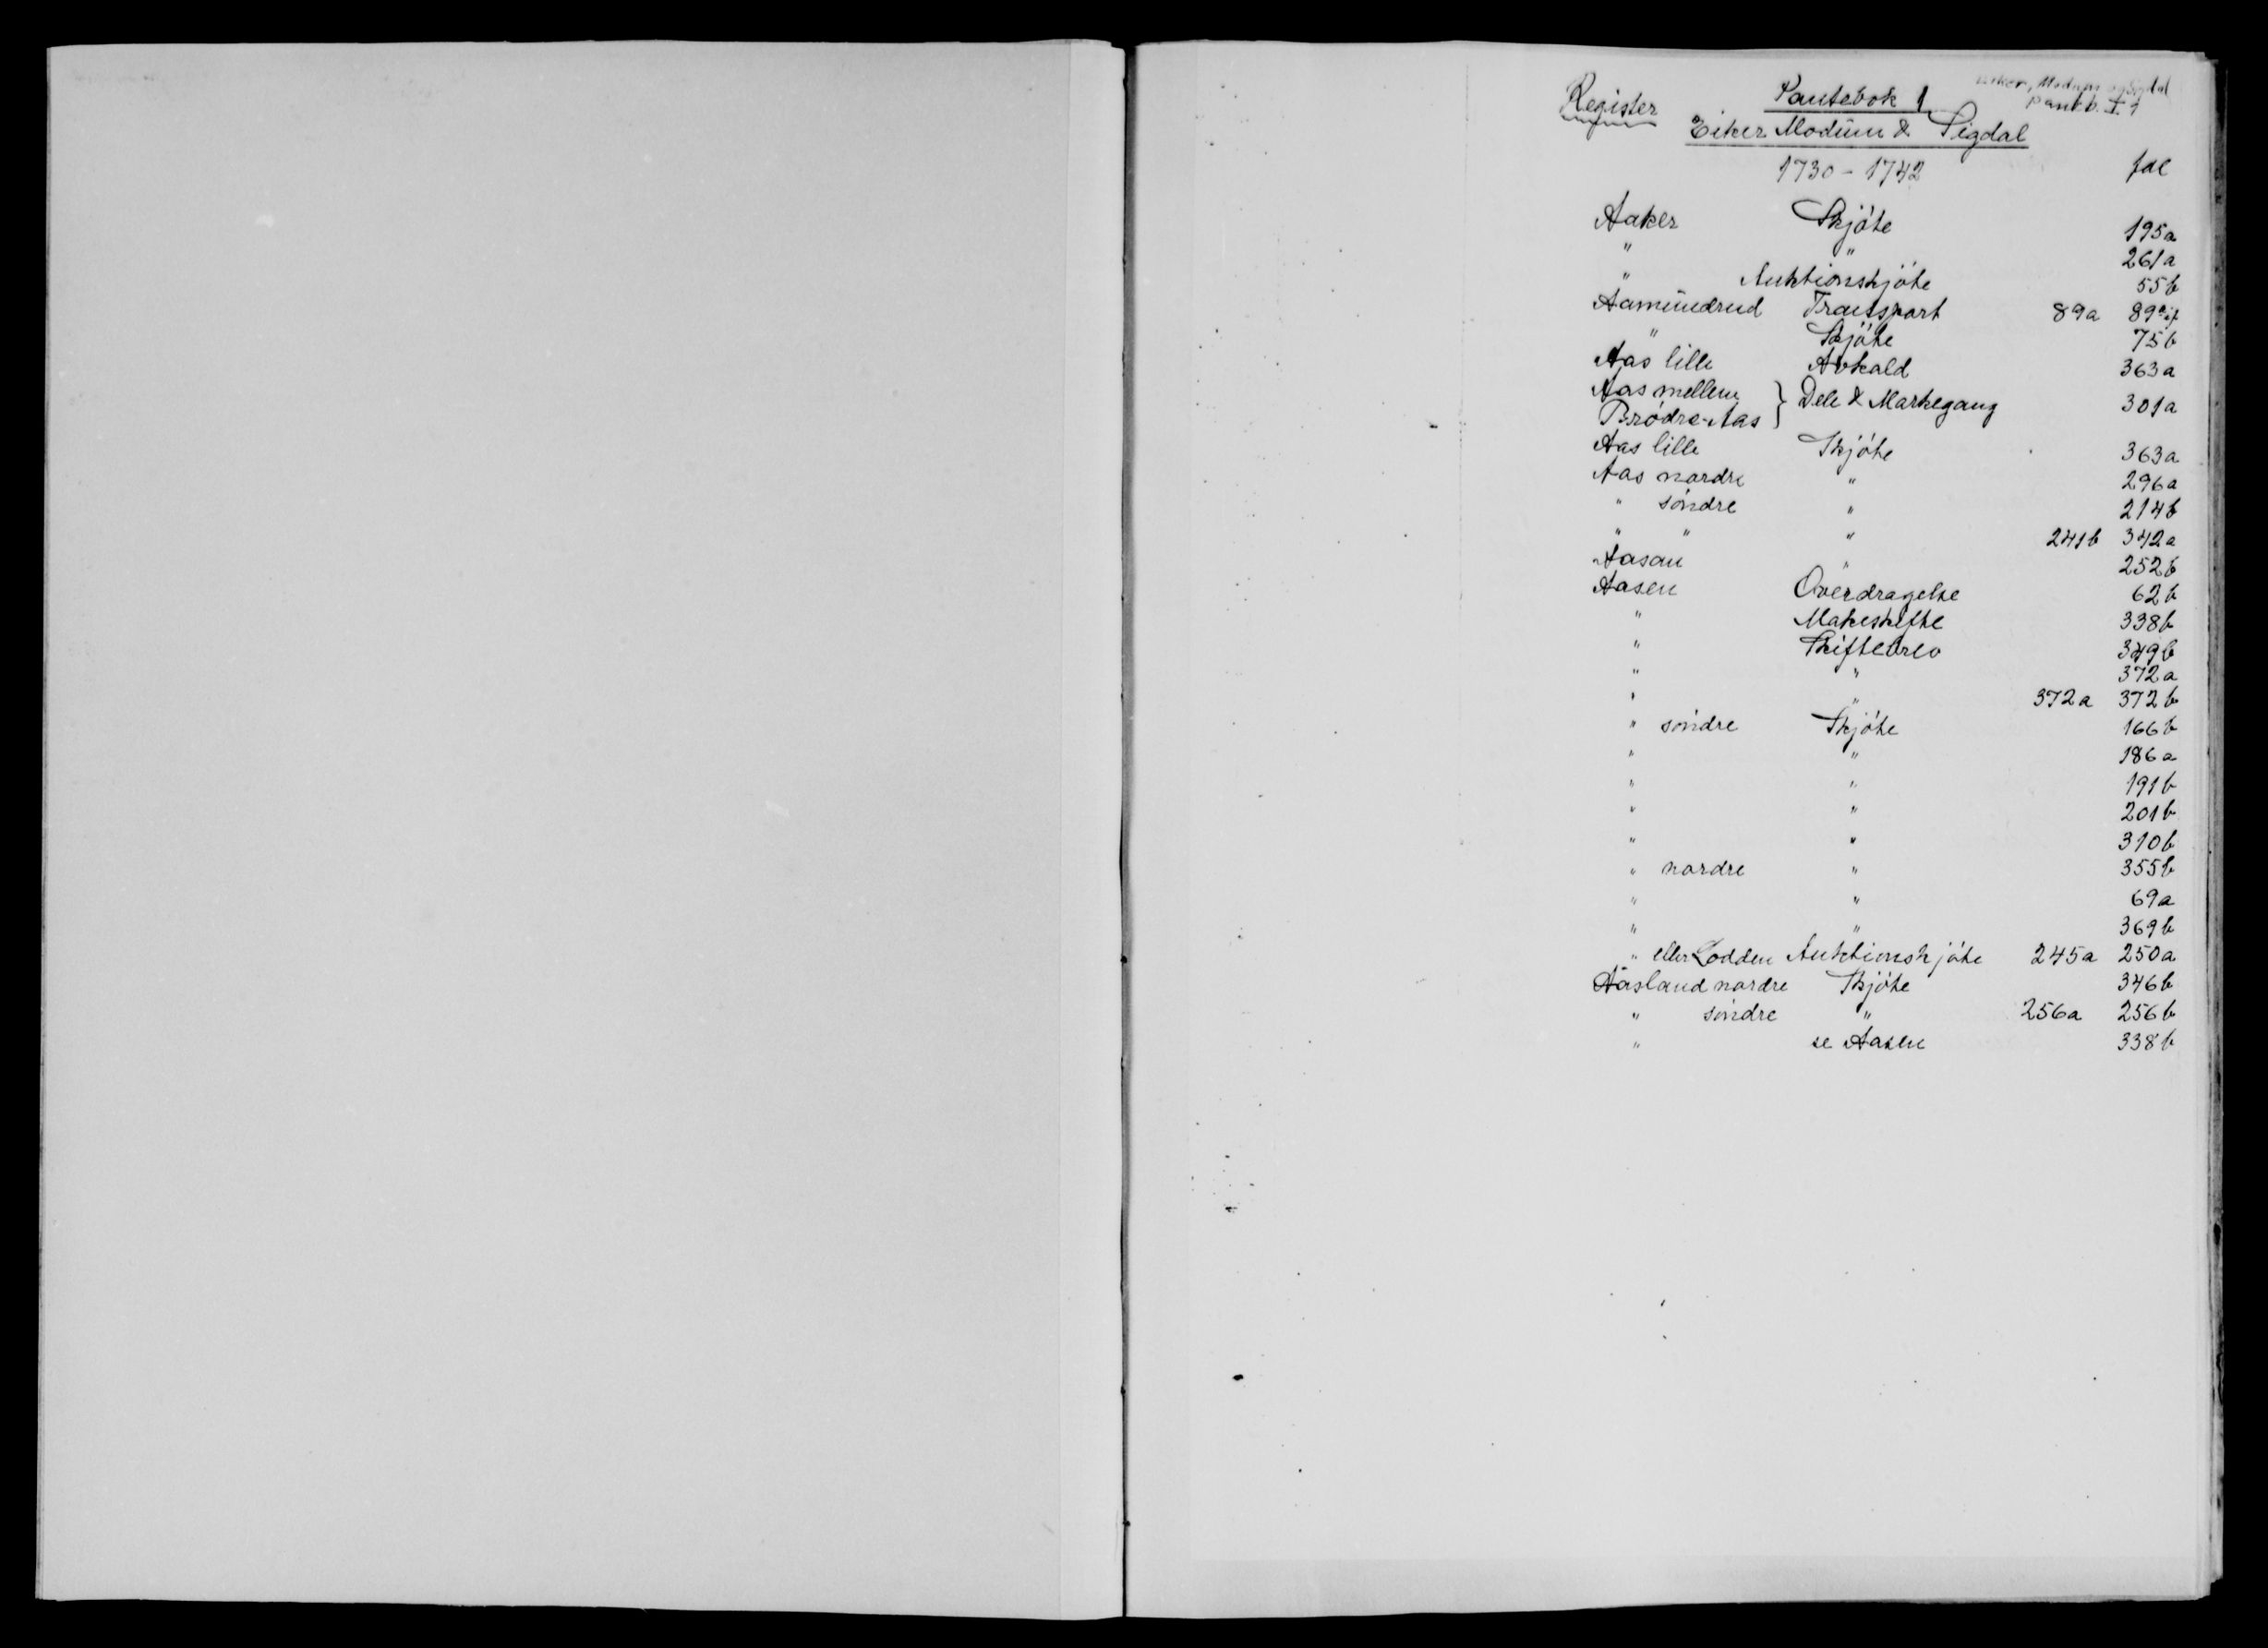 Eiker, Modum og Sigdal
Register Pantebok 1 pantb. I 1
Eiker Modum & Sigdal
1730 - 1742 fol
Aaker Skjöte 195a
" " 261a
" Auktionskjöte 55b
Aamundrud Transport 89a 89a
" Skjöte 75b
Aas lille Avkald 363a
Aas mellem } Dele & Markegang 301a
Brödre-Aas
Aas lille Skjöte 363a
Aas nordre " 296a
" söndre " 214b
" " " 241b 342a
Aasan " 252b
Aasen Overdragelse 62b
" Makeskifte 338b
" Skiftebrev 349b
" " 372a
" " 372a 372b
" söndre Skjöte 166b
" " 186a
" " 191b
" " 201b
" " 310b
" nordre " 355b
" " 69a
" " 369b
" eller Lodden Auktionskjöte 245a 250a
Aasland nordre Skjöte 346b
" söndre " 256a 256b
" se Aasen 338b